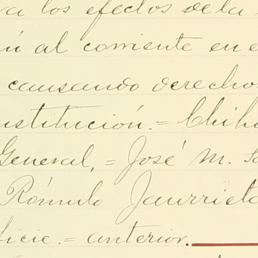 los efectos de la
al corriente en e
causando derecho
stitución.= Chih
General, = José M. Sa
Rómulo Jaurrieta
ficie. = anterior.